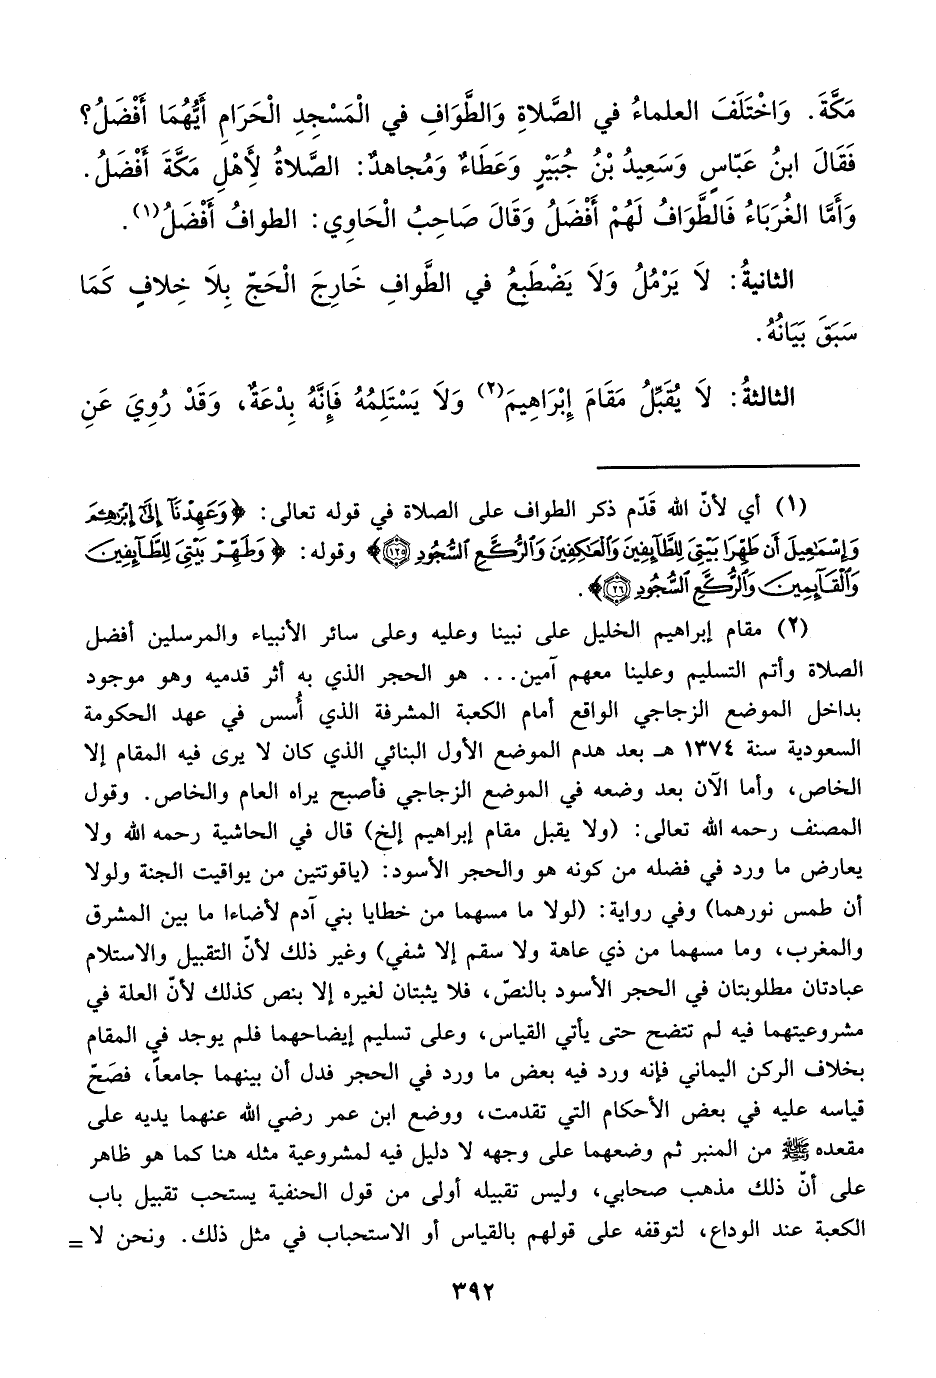 مَكَّةَ. وَاخْتَلَفَ العلماءُ في الصَّلاةِ وَالطَّوَافِ في الْمَسْجِدِ الْحَرَامِ أَيُّهُمَا أَفْضَلُ؟
فَقَالَ ابنُ عَبّاسٍ وَسَعِيدُ بْنُ جُبَيْرٍ وَعَطَاءٌ وَمُجاهدٌ: الصَّلاةُ لأَهْلِ مَكَّةَ أَفْضَلُ.
وَأَمَّا الغُرَبَاءُ فَالطَّوَافُ لَهُمْ أَفْضَلُ وَقَالَ صَاحِبُ الْحَاوِي: الطوافُ أَفْضَلُ(١).
الثانيةُ: لاَ يَرْمُلُ وَلاَ يَضْطَبِعُ في الطَّوَافِ خَارِجَ الْحَجّ بِلاَ خِلافٍ كَمَا
سَبَقَ بَيَانُهُ.
الثالثةُ: لاَ يُقَبِّلُ مَقَامَ إِبْرَاهِيمَ(٢) وَلاَ يَسْتَلِمُهُ فَإِنَّهُ بِدْعَةٌ، وَقَدْ رُوِيَ عَنِ
(١) أي لأنّ الله قَدّم ذكر الطواف على الصلاة في قوله تعالى: ﴿وَعَهِدْنَآ إِلَىٰٓ إِبْرَٰهِـۧمَ
وَإِسْمَٰعِيلَ أَن طَهِّرَا بَيْتِىَ لِلطَّآئِفِينَ وَٱلْعَٰكِفِينَ وَٱلرُّكَّعِ ٱلسُّجُودِ ١٢٥﴾ وقوله: ﴿وَطَهِّرْ بَيْتِىَ لِلطَّآئِفِينَ
وَٱلْقَآئِمِينَ وَٱلرُّكَّعِ ٱلسُّجُودِ ٢٦﴾.
(٢) مقام إبراهيم الخليل على نبينا وعليه وعلى سائر الأنبياء والمرسلين أفضل
الصلاة وأتم التسليم وعلينا معهم آمين... هو الحجر الذي به أثر قدميه وهو موجود
بداخل الموضع الزجاجي الواقع أمام الكعبة المشرفة الذي أُسس في عهد الحكومة
السعودية سنة ١٣٧٤ هـ بعد هدم الموضع الأول البنائي الذي كان لا يرى فيه المقام إلا
الخاص، وأما الآن بعد وضعه في الموضع الزجاجي فأصبح يراه العام والخاص. وقول
المصنف رحمه الله تعالى: (ولا يقبل مقام إبراهيم إلخ) قال في الحاشية رحمه الله ولا
يعارض ما ورد في فضله من كونه هو والحجر الأسود: (ياقوتتين من يواقيت الجنة ولولا
أن طمس نورهما) وفي رواية: (لولا ما مسهما من خطايا بني آدم لأضاءا ما بين المشرق
والمغرب، وما مسهما من ذي عاهة ولا سقم إلا شفي) وغير ذلك لأنّ التقبيل والاستلام
عبادتان مطلوبتان في الحجر الأسود بالنصّ، فلا يثبتان لغيره إلا بنص كذلك لأنّ العلة في
مشروعيتهما فيه لم تتضح حتى يأتي القياس، وعلى تسليم إيضاحهما فلم يوجد في المقام
بخلاف الركن اليماني فإنه ورد فيه بعض ما ورد في الحجر فدل أن بينهما جامعاً، فصَحّ
قياسه عليه في بعض الأحكام التي تقدمت، ووضع ابن عمر رضي الله عنهما يديه على
مقعده ﷺ من المنبر ثم وضعهما على وجهه لا دليل فيه لمشروعية مثله هنا كما هو ظاهر
على أنّ ذلك مذهب صحابي، وليس تقبيله أولى من قول الحنفية يستحب تقبيل باب
الكعبة عند الوداع، لتوقفه على قولهم بالقياس أو الاستحباب في مثل ذلك. ونحن لا =
٣٩٢